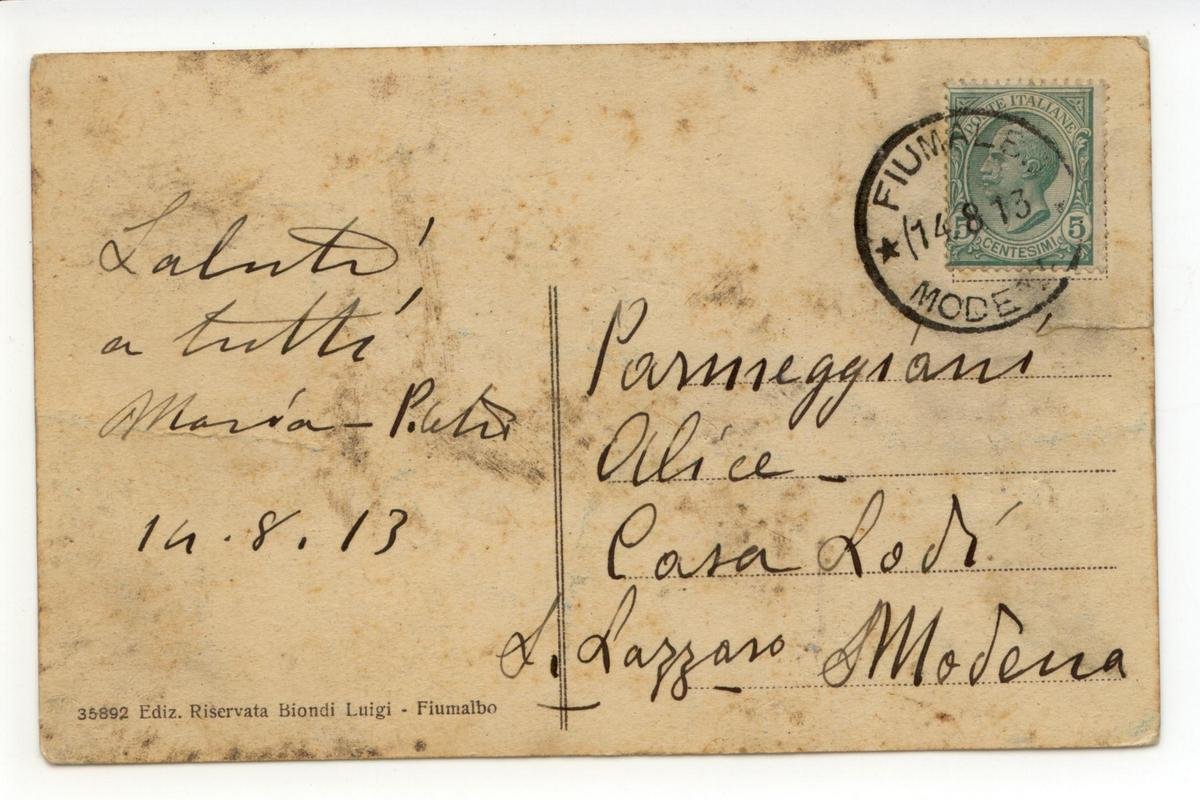 POSTE ITALIANE
5 5
CENTESIMI
FIUMALBO
14.8.13
MODENA
Saluti
a tutti
Maria -
14.8.13
Parmeggiani
Alice -
Casa Lodi
S. Lazzaro Modena
35892 Ediz. Riservata Biondi Luigi - Fiumalbo